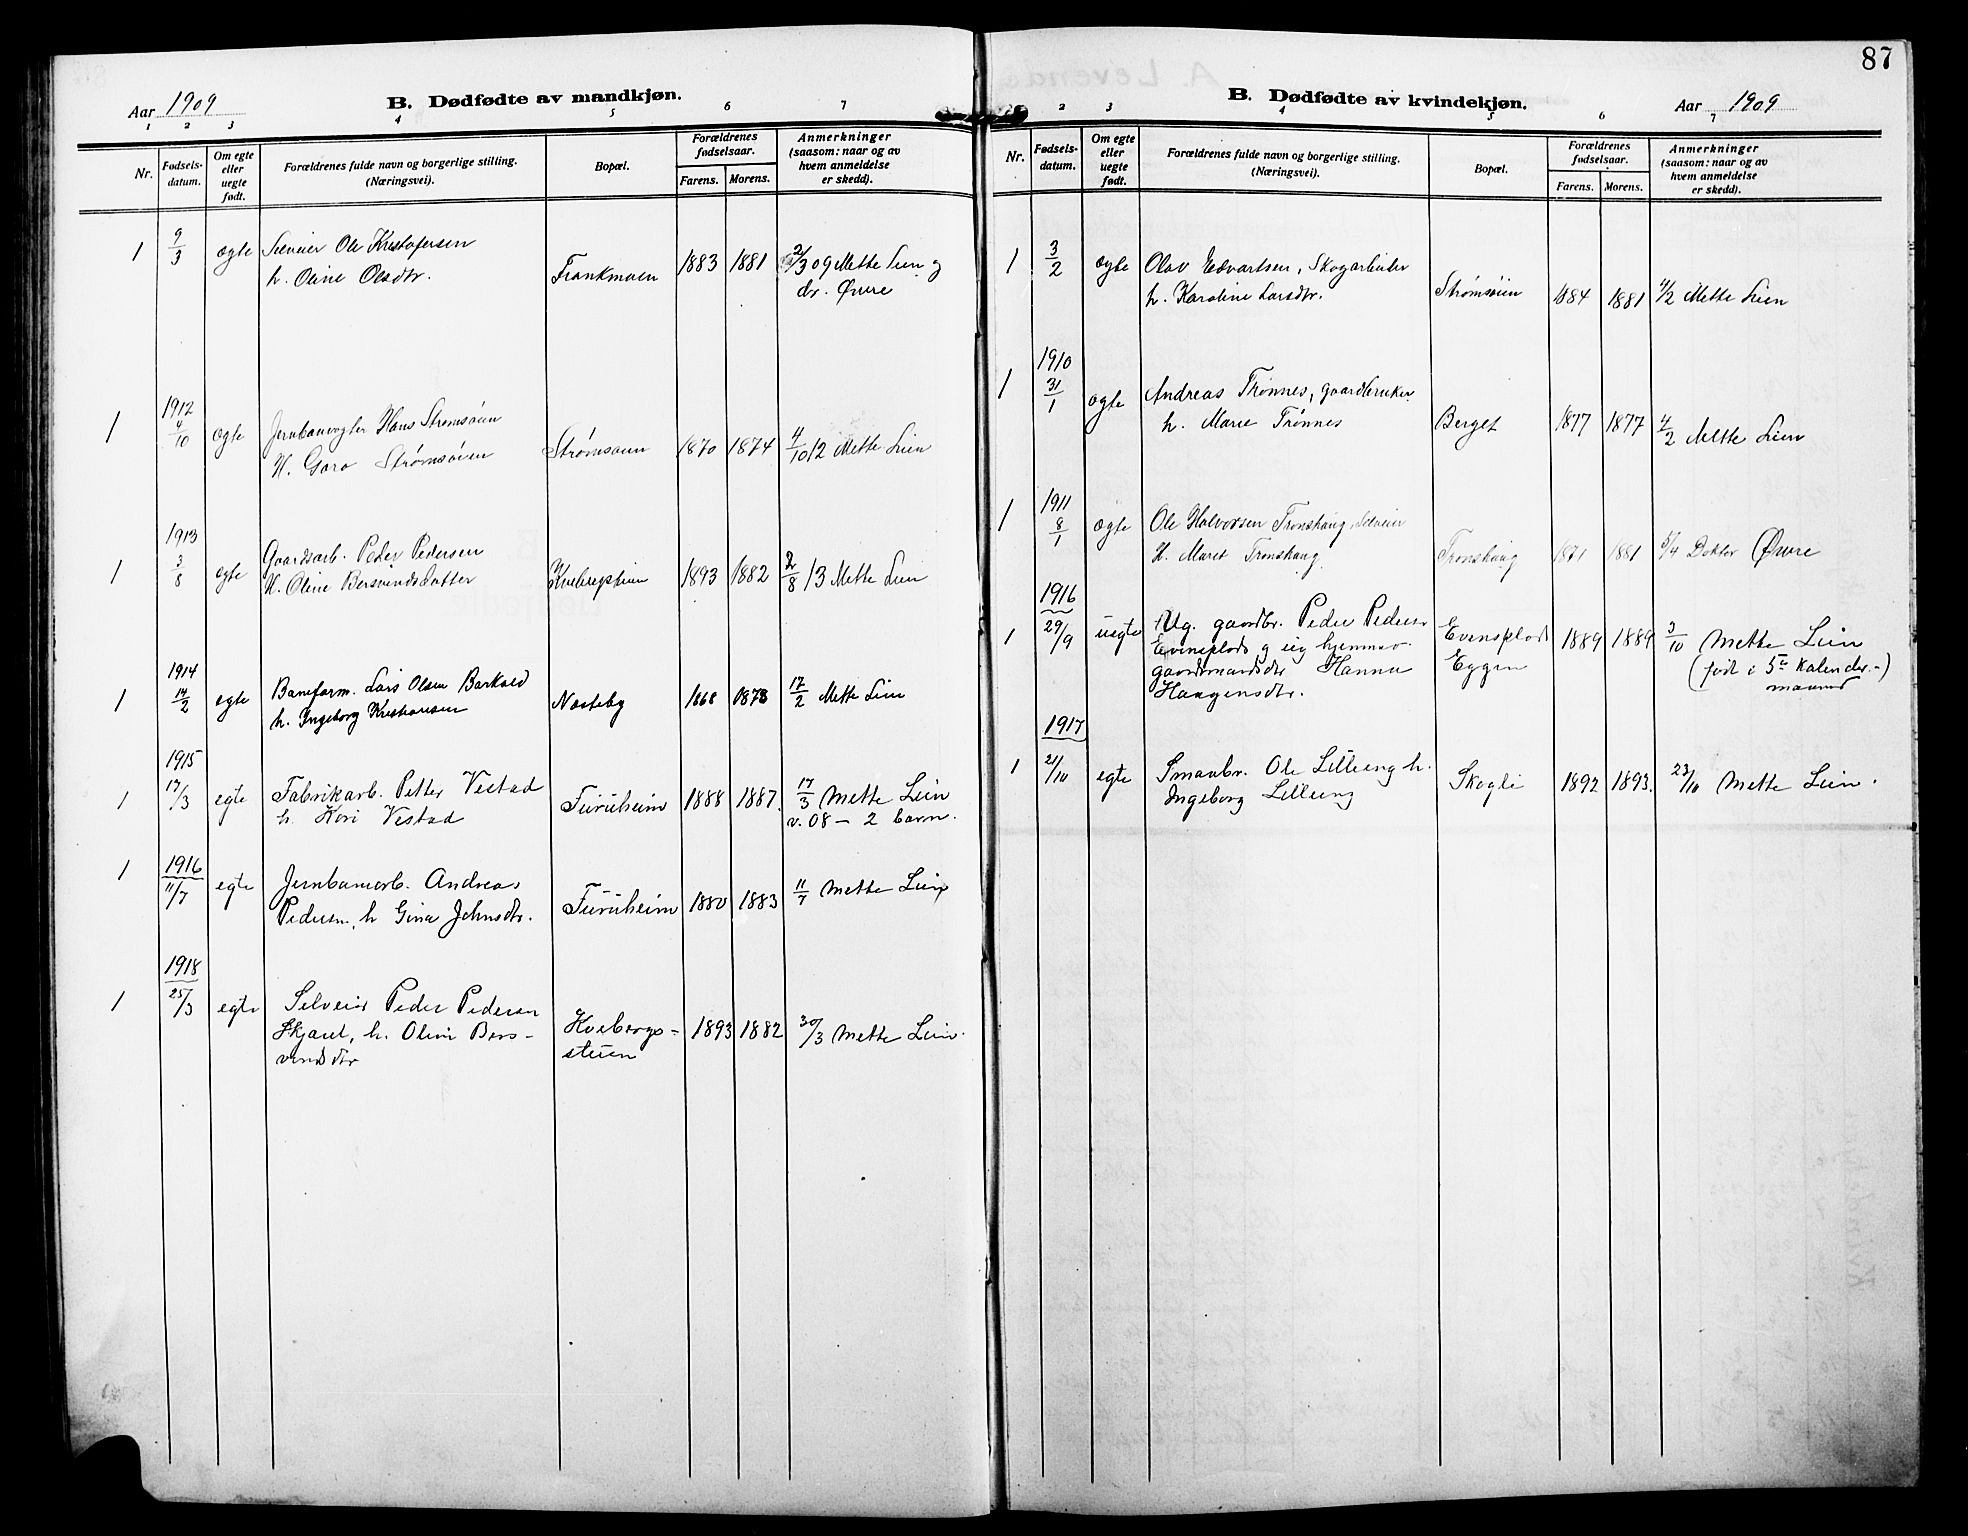 87
Aar 1909
B. Dødfødte av mandkjøn.
1 2 3 4 5 6 7
Nr.
Fødsels-
datum.
Om egte
eller
uegte
født.
Forældrenes fulde navn og borgerlige stilling.
(Næringsvei).
Bopæl.
Forældrenes
fødselsaar.
Farens. Morens.
Anmerkninger
(saasom: naar og av
hvem anmeldelse
er skedd).
1 9/3 ægte Selveier Ole Kristofersen
h. Oline Olsdtr. Frankmoen 1883 1881 2/3 09 Mette Lien og
dr. Øvre
1912
1 4/10 ægte Jernbanevogter Hans Strømsøien
H. Goro Strømsøien Strømsøien 1870 1874 4/10 12 Mette Lien
1913
1 3/8 egte Gaardsarb. Peder Pedersen
H. Oline Bersvendsdatter Kvebergstuen 1893 1882 2/8 13 Mette Lien
1914
1 14/2 egte Baneform. Lars Olsen Barkald
h. Ingeborg Kristiansen Nosteby 1868 1873 17/2 Mette Lien
1915
1 17/3 egte Fabrikarb. Petter Vestad
h. Kari Vestad Furuheim 1888 1887. 17/3 Mette Lien
v. 08 – 2 barn.
1916
1 11/7 egte Jernbanearb. Andreas
Pedersen, h Gina Johnsdtr. Furuheim 1880 1883 11/7 Mette Lien
1918
1 25/3 egte Selveier Peder Pedersen
Skjæret, h. Oline Bers-
vendsdtr Kvebergs-
stuen 1893 1882 30/3 Mette Lien.
B. Dødfødte av kvindekjøn.
Aar 1909
2 3 4 5 6 7
Nr.
Fødsels-
datum.
Om egte
eller
uegte
født.
Forældrenes fulde navn og borgerlige stilling.
(Næringsvei).
Bopæl.
Forældrenes
fødselsaar.
Farens. Morens.
Anmerkninger
(saasom: naar og av
hvem anmeldelse
er skedd).
1 3/2 ægte Olav Edvartsen, Skogarbeider
h. Karoline Larsdtr. Strømsøien 1884 1881 4/2 Mette Lien
1910
1 31/1 ægte Andreas Trønnes, gaardbruker
h. Marie Trønnes Berget 1877 1877 4/2 Mette Lien
1911
1 8/1 ægte Ole Halvorsen Tronshaug, Selveier
H. Maret Tronshaug Tronshaug 1871 1881 5/4 Doktor Øvre
1916
1 29/9 uegte Ug. gaardbr. Peder Peders.
Evensplads og ug hjemmev.
gaardmandsdtr Hanna
Haagensdtr. Evensplads
Eggen 1889 1889 3/10 Mette Lein
(født i 5te Kalender-)
maaned
1917
1 21/10 egte Smaabr. Ole Lilleeng h.
Ingeborg Lilleeng Skogli 1892 1893. 23/10 Mette Lein.